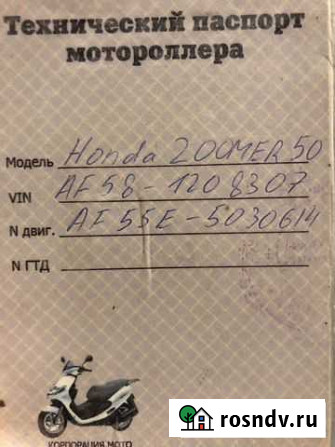 Технический паспорт
мотороллера
Модель Honda ZOOMER 50
VIN AF58-1208307
N двиг. AF55E-5030614
N ГТД
КОРПОРАЦИЯ МОТО
rosndv.ru